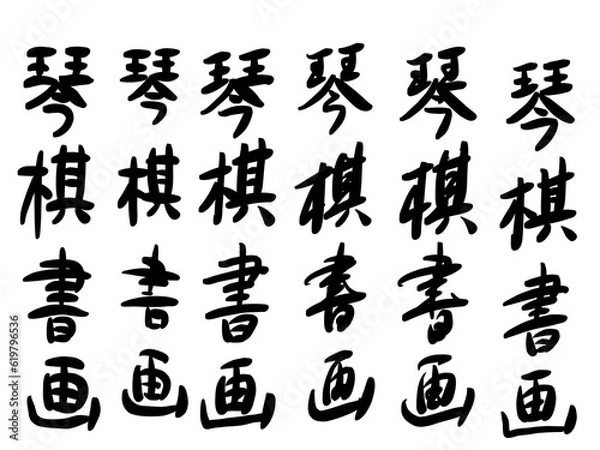 琴棋書画
琴棋書画
琴棋書画
琴棋書画
琴棋書画
琴棋書画
619796536
Adobe Stock